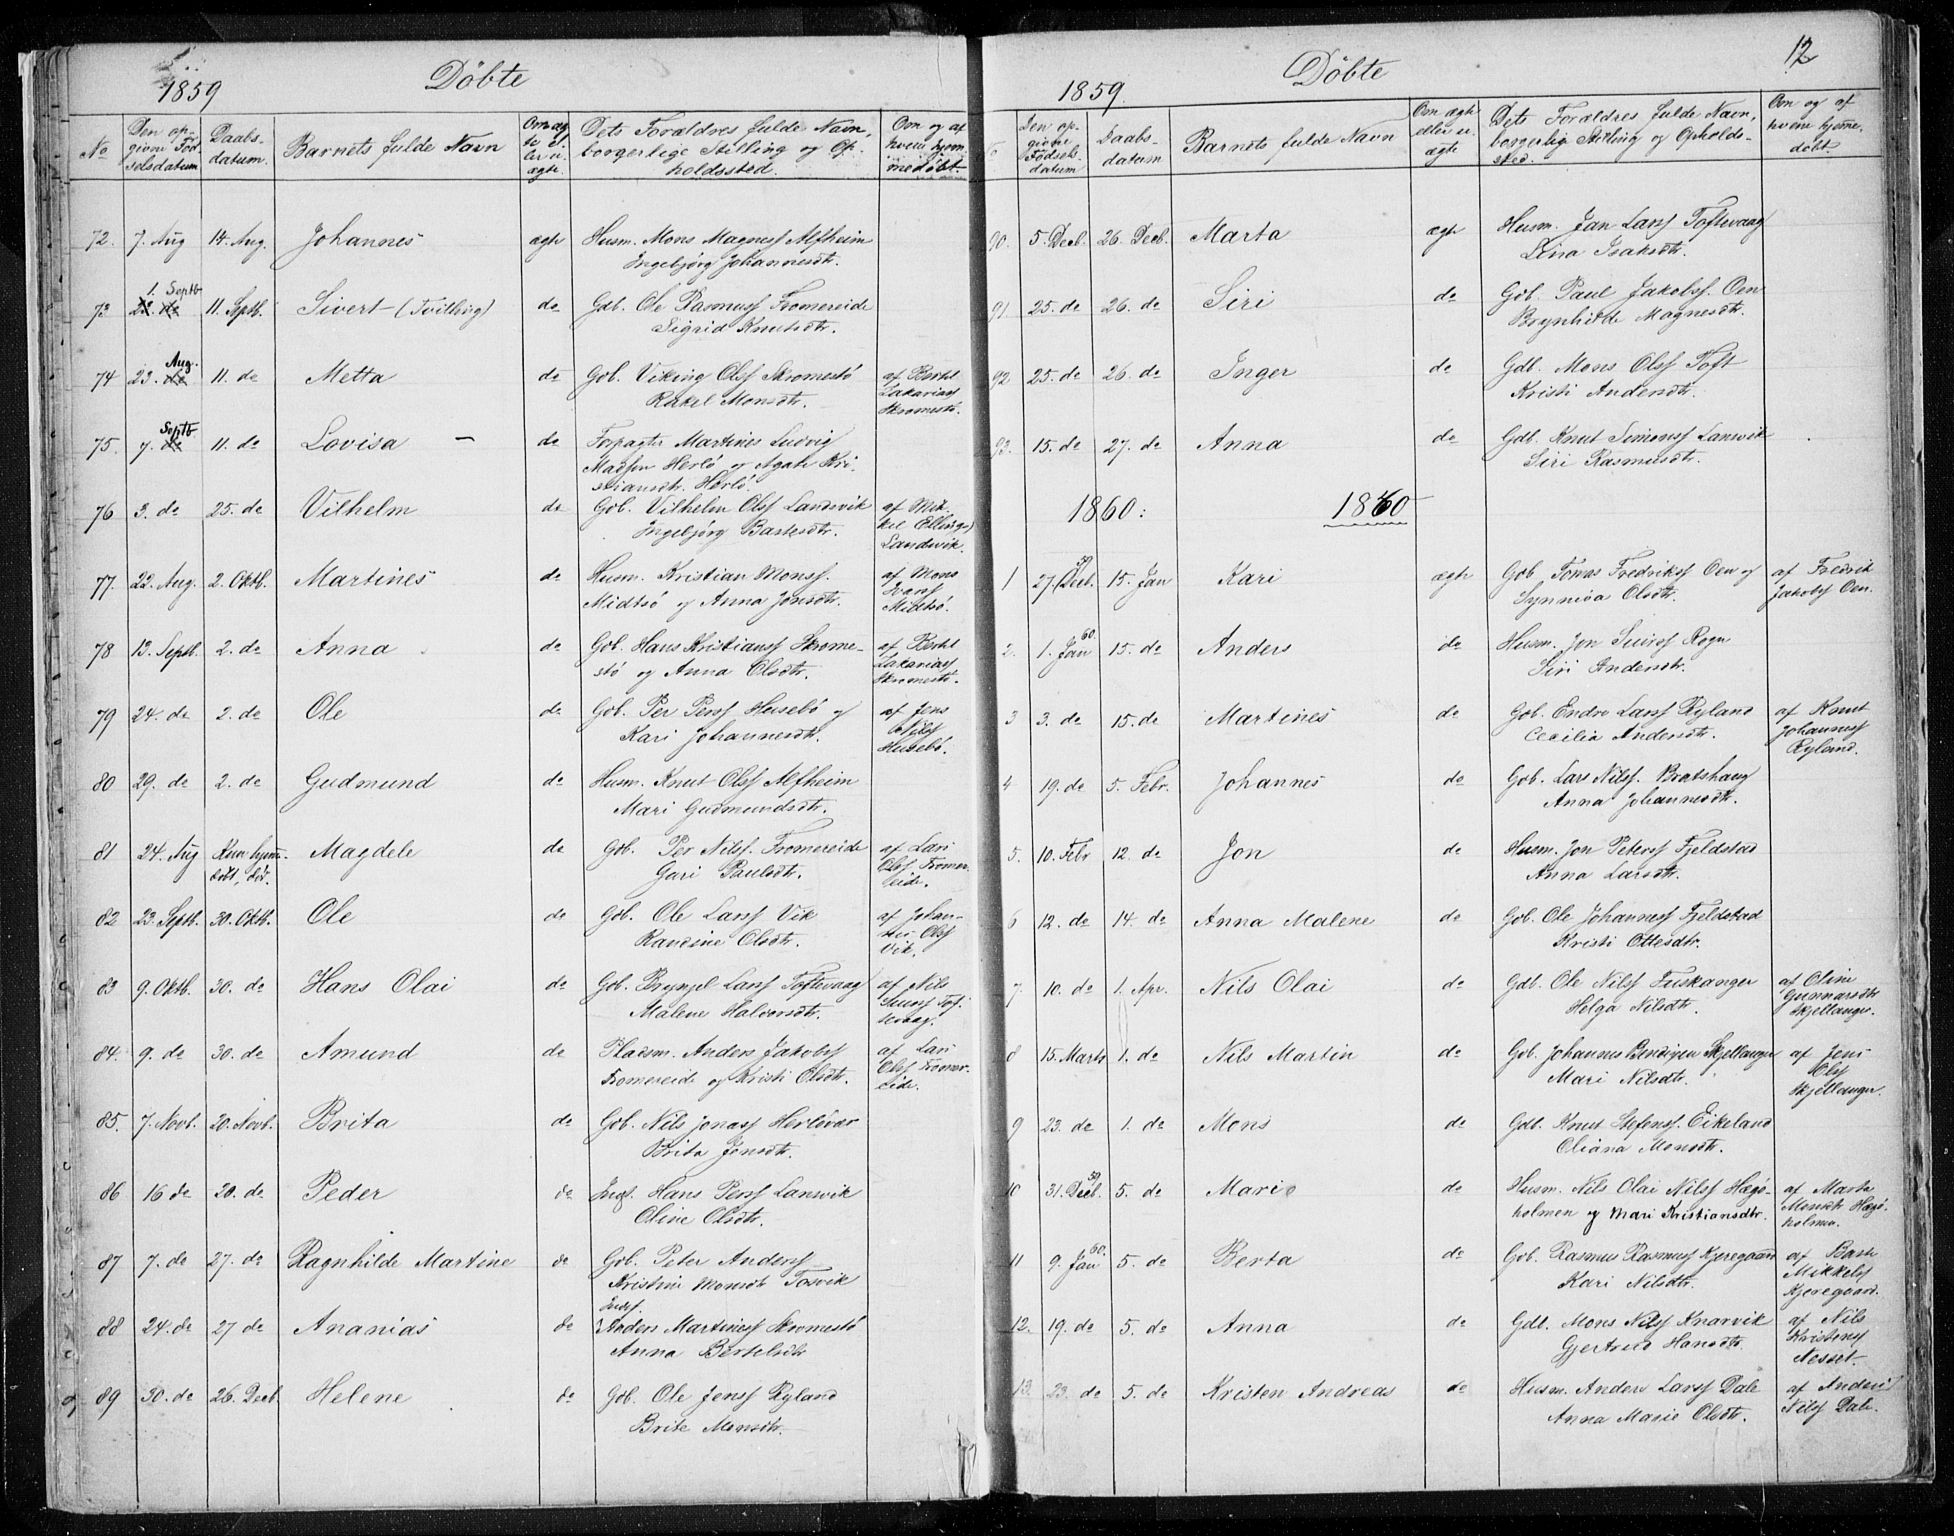 1859 Döbte
No Den opgivne Födselsdatum Daabsdatum. Barnets fulde Navn Om ægte eller uægte. Dets Forældres fulde Navn, borgerlige Stilling og Opholdssted. Om og af hvem hjemmedöbt.
72. 7. Aug 14. Aug. Johannes ægte Husm. Mons Magness Alfheim
Ingebjørg Johannesdtr.
73 1. Septb 11. Septb. Sivert (Tvilling) do Gdb. Ole Rasmuss Fromereide
Sigrid Knutsdtr.
74 23. Aug. 11. do Metta do Gdb. Viking Olss Skromestö af Berhl
Rakel Monsdtr. Zakariass
Skromestö.
75. 7. Septb 11. do Lovisa — do Forpagter Martines Ludvig
Madsen Herlö og Agate Kri-
stiansdtr. Herlö.
76 3. do 25. do Vilhelm do Gdb. Vilhelm Olss Landsvik af Mik-
Ingebjörg Bartesdtr. kel Ellings
Landsvik.
77. 22. Aug. 2. Oktb. Martines do Husm. Kristian Monss. af Mons
Midtsö og Anna Jonsdtr. Ivarss
Midtsö.
78 13. Septb. 2. do Anna do Gdb. Hans Kristianss Skrome- af Berhl
stö og Anna Olsdtr. Zakariass
Skromestö.
79 24. do 2. do Ole do Gdb. Per Perss Husebö og af Jens
Kari Johannesdtr. Nilss
Husebö.
80 29. do 2. do Gudmund do Husm. Knut Olss Alfheim
Mari Gudmundsdtr.
81 24. Aug Kun hjem- Magdele do Gdb. Per Nilss. Fromereide af Lars
döbt, död. Gari Paulsdtr. Olss Fromer-
eide.
82 23. Septb. 30. Oktb. Ole do Gdb. Ole Larss Vik af Johan-
Randine Olsdtr. nes Olss
Vik.
83 9. Oktb. 30. do Hans Olai do Gdb. Brynjel Larss Toftevaag af Nils
Malene Halvorsdtr. Tof-
tevaag.
84. 9. do 30. do Amund do Pladsm. Anders Jakobss af Lars
Fromereide og Kristi Olsdtr. Olss Fromer-
eide.
85. 7. Novb. 20. Novb. Brita do Gdb. Nils Jonass Herlövær
Brita Jensdtr.
86 16 do 20. do Peder do Inds. Hans Perss Lansvik
Oline Olsdtr.
87 7. do 27. do Ragnhilde Martine do Gdb. Peter Anderss
Kristine Monsdtr Tosvik
Inds.
88 24. do 27 do Ananias do Anders Martiness Skromestö
Anna Bertelsdtr
89 30. do 26. Decb. Helene do Gdb. Ole Jenss Ryland
Brite Monsdtr.
12
1859. Döbte
Den opgivne Födselsdatum Daabsdatum Barnets fulde Navn Om ægte eller uægte Dets Forældres fulde Navn, borgerlige Stilling og Opholdssted. Om og af hvem hjemmedöbt.
90. 5. Decb. 26. Decb. Marta ægte Husm. Jan Larss Toftevaag
Lina Isaksdtr.
91. 25. do 26. do Siri do Gdb. Paul Jakobss. Oen
Brynhilde Magnesdtr.
92 25. do 26. do Inger do Gdb. Mons Olss Toft
Kristi Andersdtr.
93. 15. do 27. do Anna do Gdb. Knut Simonss Lansvik
Siri Rasmusdtr.
1860: 1860
1 27. Decb. 59 15. Jan Kari ægte Gdb Tomas Fredrikss Oen og af Fredrik
Synneva Olsdtr. Jakobss Oen.
2. 1. Jan 60. 15. do Anders do Husm. Jon Rogn
Siri Andersdtr.
3 3. do 15. do Martines do Gdb. Endre Larss Ryland af Knut
Cecilia Andersdtr. Johanness
Ryland.
4 19. do 5. Febr. Johannes do Gdb. Lars Nilss. Bratshaug
Anna Johannesdtr.
5. 10. Febr 12. do Jon do Husm. Jon Peterss Fjeldstad
Anna Larsdtr.
6 12. do 14. do Anna Malene do Gdb. Ole Johanness Fjeldstad
Kristi Ottesdtr.
7 10. do 1. Apr. Nils Olai do Gdb. Ole Nilss Fuskanger af Oline
Helga Nilsdtr. Gunnarsdtr
Skjellanger.
8 15. Marts 1. do Nils Martin do Gdb. Johannes Bendixen Skjellanger af Jens
Mari Nilsdtr. Olss
Skjellanger.
9 23. do 1. do Mons do Gdb. Knut Stefenss. Eikeland
Oliana Monsdtr.
10 31. Decb. 59 5. do Mari do Husm. Nils Olai Nilss Hægö- af Marta
holmen og Mari Kristiansdtr. Monsdtr Hægö-
holmen.
11 9. Jan 60. 5. do Berta do Gdb. Rasmus Rasmuss Kjeregaard af
Kari Nilsdtr. Mikkels
Kjeregaard.
12. 19. do 5. do Anna do Gdb. Mons Nilss Knarvik af Nils
Gjertrud Hansdtr. Kristenss
Nesset.
13. 23. do 5. do Kristen Andreas do Husm. Anders Larss Dale af Anders
Anna Marie Olsdtr. Nilss Dale.